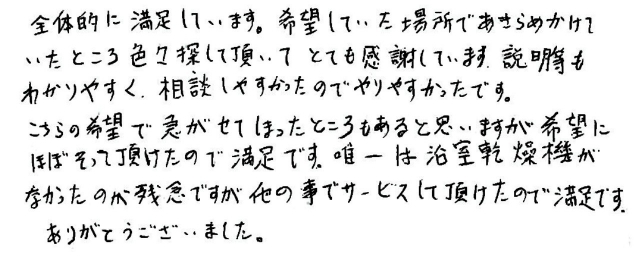 全体的に満足しています。希望していた場所であきらめかけて
いたところ色々探して頂いてとても感謝しています。説明等も
わかりやすく、相談しやすかったのでやりやすかったです。
こちらの希望で急がせてしまったところもあると思いますが希望に
ほぼそって頂けたので満足です。唯一は浴室乾燥機が
なかったのが残念ですが他の事でサービスして頂けたので満足です。
ありがとうございました。